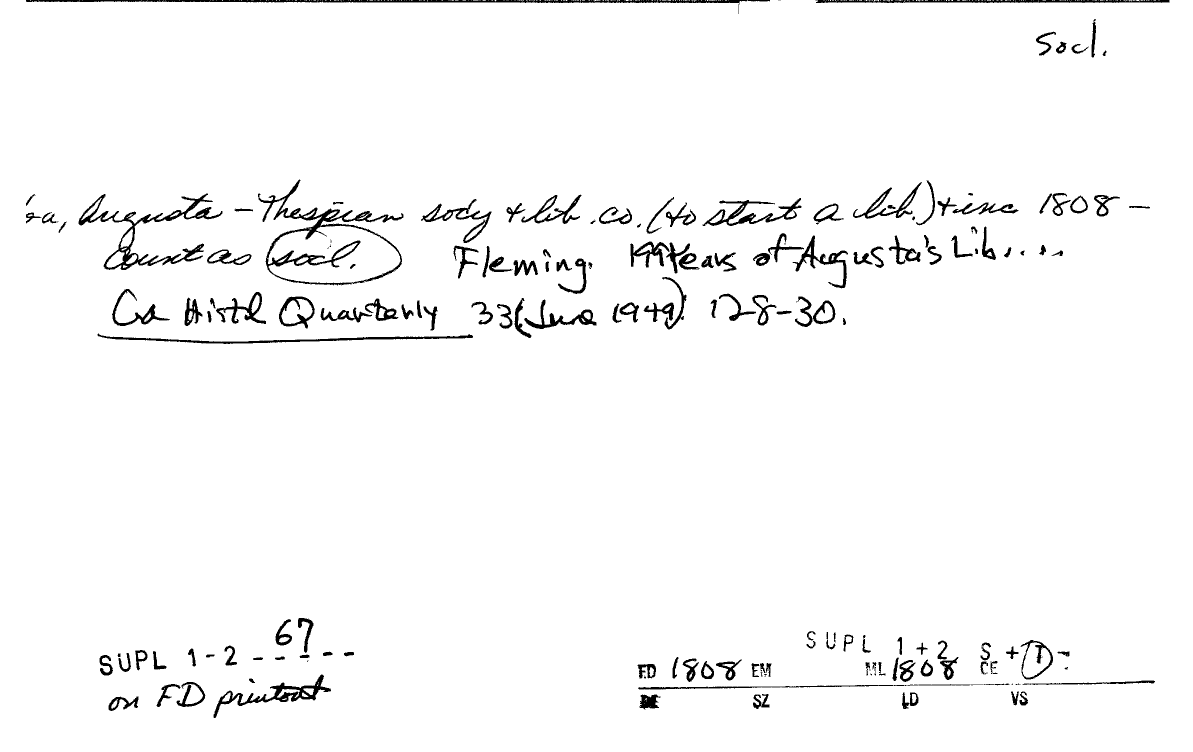 Socl.
Ga, Augusta - Thespian socy + lib. co. (to start a lib.) + inc 1808 -
Count as socl. Fleming. 199 Years of Augusta's Lib....
Ga Histl Quarterly 33(June 1949): 128-30.
SUPL 1-2 - 67 - - -
on FD printout
SUPL 1 + 2 S + 1 -
FD 1808 EM ML 1808 CE
SZ LD VS